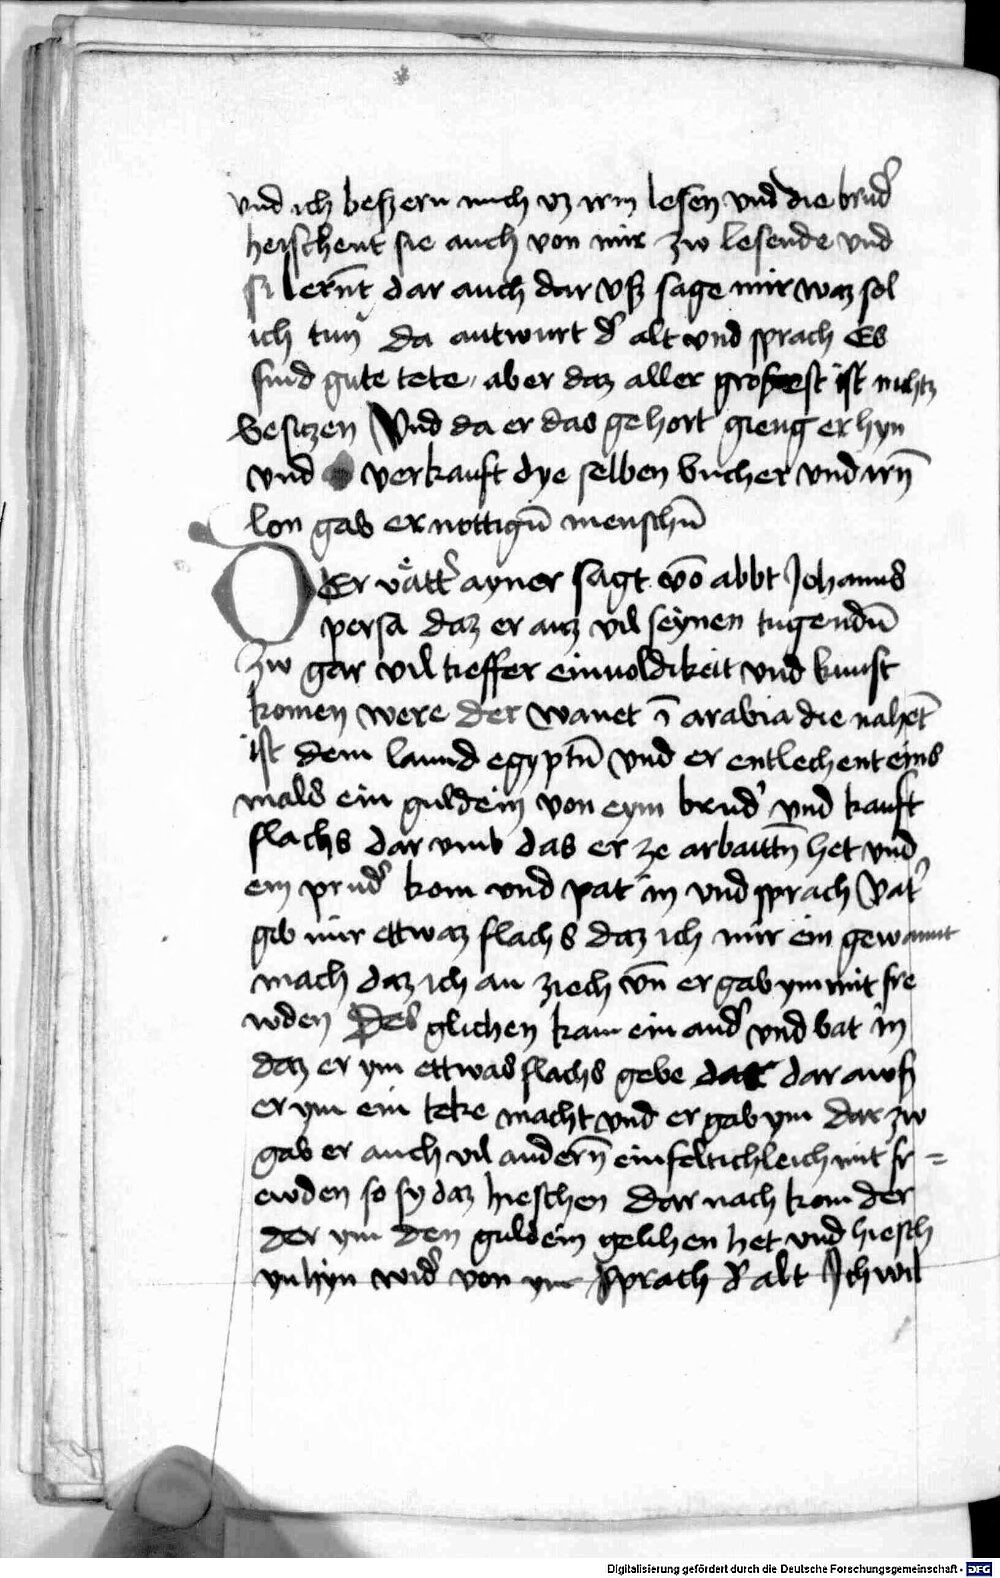 vnd ich beſzern mich vz irm leſen vnd die brud̕
heiſchent ſie auch von mir zw leſende vnd
ſi lern̄t dar auch dar vſz ſage mir waz ſol
ich tun̄ da antwurt d̕ alt vnd ſprach Es
ſind gute tete, aber daz aller groſzeſt iſt nichtz
beſitzen Vnd da er das gehort gieng er hyn
vnd verkauft dye ſelben bucher vnd irn̄
lon gab er nottign̄ menſchn̄
DEr vätt̕ ayner ſagt vō abbt Johannes
perſa daz er auz vil ſeynen tugendn̄
zw gar vil tieffer einuoldikeit vnd kunſt
komen were der wanet ī arabia die nahet̄
iſt dem laund egyptn̄ vnd er entlechent eins
mals ein guldein von eym brud̕ vnd kauft
flachs dar vmb das er ze arbaittn̄ het vnd
ein prud̕ kom vnd pat in vnd ſprach Vat̕
gib mir ettwaz flachs daz ich mir ein gewannt
mach daz ich an ziech vn̄ er gab ym mit fre
wden Des glichen kam ein and̕ vnd bat in
daz er ym ettwas flachs gebe dar awſz
er ym ein teke macht vnd er gab ym dar zw
gab er auch vil andern̄ einfeltichleich mit fr=
ewden ſo ſy daz hieſchen dar nach kom der
der ym den guldein gelihen het vnd hieſch
yn hyn wid̕ von ym Sprach d̕ alt Ich wil
Digitalisierung gefördert durch die Deutsche Forschungsgemeinschaft - DFG